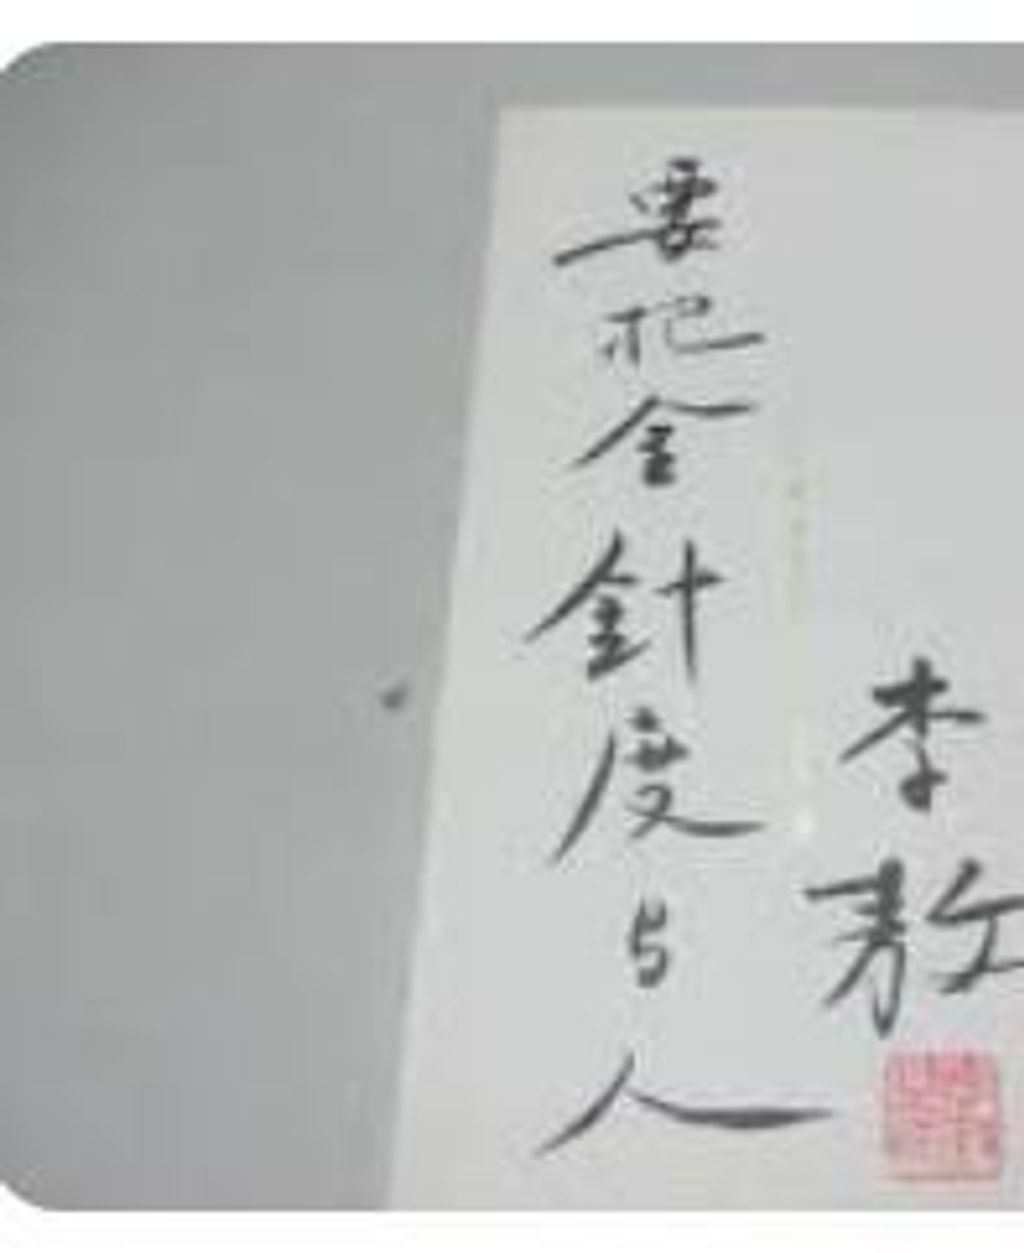 要把金針度与人
李敖